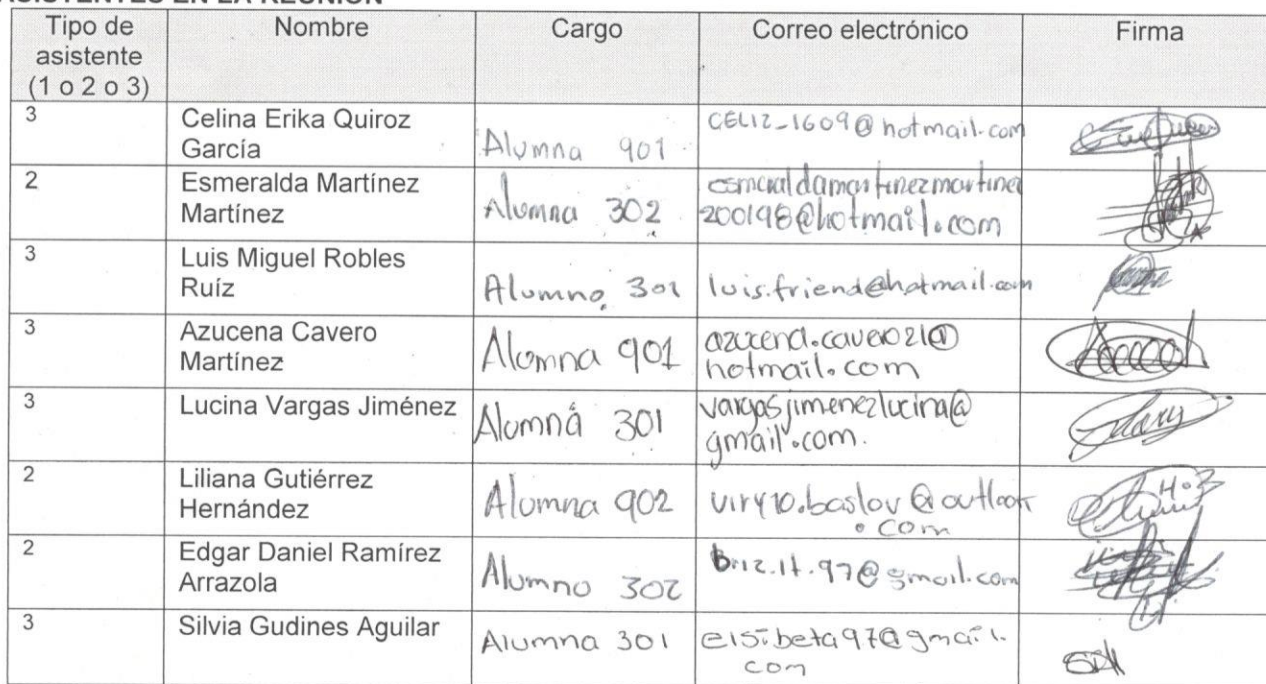 ASISTENTES EN LA REUNIÓN
Tipo de asistente (1 o 2 o 3) Nombre Cargo Correo electrónico Firma
3 Celina Erika Quiroz García Alumna 901 CELIZ_1609@hotmail.com
2 Esmeralda Martínez Martínez Alumna 302 esmeraldamartinezmartinez200198@hotmail.com
3 Luis Miguel Robles Ruíz Alumno 301 luis.friend@hotmail.com
3 Azucena Cavero Martínez Alumna 901 azucena.cavero21@hotmail.com
3 Lucina Vargas Jiménez Alumna 301 vargasjimenezlucina@gmail.com.
2 Liliana Gutiérrez Hernández Alumna 902 viry10.baslov@outlook.com
2 Edgar Daniel Ramírez Arrazola Alumno 302
3 Silvia Gudines Aguilar Alumna 301 elsibeta97@gmail.com